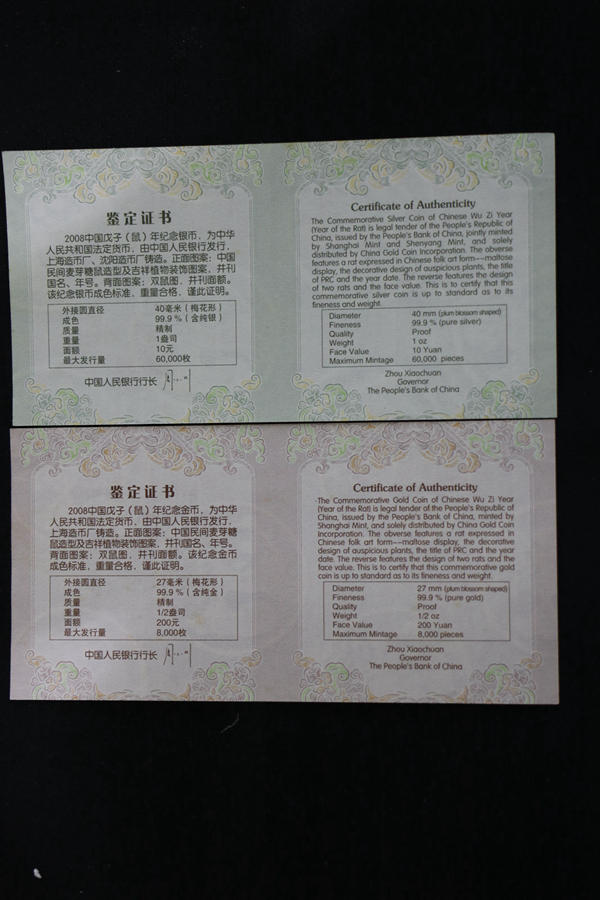 鉴定证书
2008中国戊子（鼠）年纪念银币，为中华
人民共和国法定货币，由中国人民银行发行，
上海造币厂、沈阳造币厂铸造。正面图案：中国
民间麦芽糖鼠造型及吉祥植物装饰图案，并刊
国名、年号。背面图案：双鼠图，并刊面额。
该纪念银币成色标准，重量合格，谨此证明。
外接圆直径 40毫米（梅花形）
成色 99.9％（含纯银）
质量 精制
重量 1盎司
面额 10元
最大发行量 60,000枚
中国人民银行行长
Certificate of Authenticity
The Commemorative Silver Coin of Chinese Wu Zi Year
(Year of the Rat) is legal tender of the People's Republic of
China, issued by the People's Bank of China, jointly minted
by Shanghai Mint and Shenyang Mint, and solely
distributed by China Gold Coin Incorporation. The obverse
features a rat expressed in Chinese folk art form---maltose
display, the decorative design of auspicious plants, the title
of PRC and the year date. The reverse features the design
of two rats and the face value. This is to certify that this
commemorative silver coin is up to standard as to its
fineness and weight.
Diameter 40 mm (plum blossom shaped)
Fineness 99.9 % (pure silver)
Quality Proof
Weight 1 oz
Face Value 10 Yuan
Maximum Mintage 60,000 pieces
Zhou Xiaochuan
Governor
The People's Bank of China
鉴定证书
2008中国戊子（鼠）年纪念金币，为中华
人民共和国法定货币，由中国人民银行发行，
上海造币厂铸造。正面图案：中国民间麦芽糖
鼠造型及吉祥植物装饰图案，并刊国名、年号。
背面图案：双鼠图，并刊面额。该纪念金币
成色标准，重量合格，谨此证明。
外接圆直径 27毫米（梅花形）
成色 99.9％（含纯金）
质量 精制
重量 1/2盎司
面额 200元
最大发行量 8,000枚
中国人民银行行长
Certificate of Authenticity
The Commemorative Gold Coin of Chinese Wu Zi Year
(Year of the Rat) is legal tender of the People's Republic of
China, issued by the People's Bank of China, minted by
Shanghai Mint, and solely distributed by China Gold Coin
Incorporation. The obverse features a rat expressed in
Chinese folk art form---maltose display, the decorative
design of auspicious plants, the title of PRC and the year
date. The reverse features the design of two rats and the
face value. This is to certify that this commemorative gold
coin is up to standard as to its fineness and weight.
Diameter 27 mm (plum blossom shaped)
Fineness 99.9 % (pure gold)
Quality Proof
Weight 1/2 oz
Face Value 200 Yuan
Maximum Mintage 8,000 pieces
Zhou Xiaochuan
Governor
The People's Bank of China